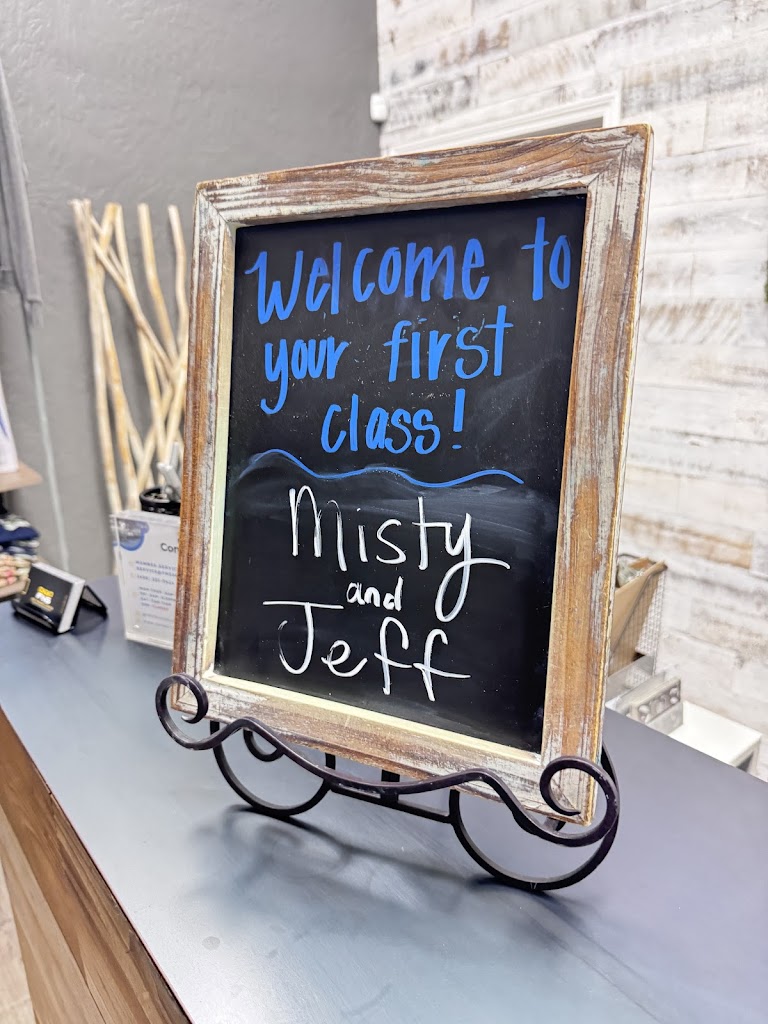 Welcome to
your first
class!
Misty
and
Jeff